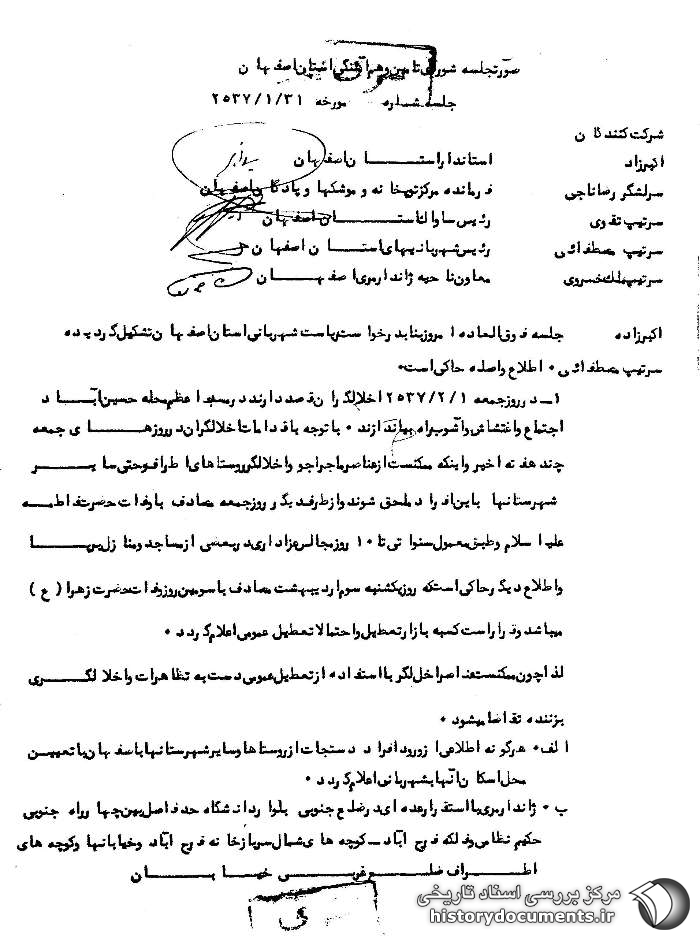 صورتجلسه شورای تامین و هم آهنگی استان اصفهان
جلسه شماره مورخه ۲۵۳۷/۱/۳۱
شرکت کنندگان
اکبرزاد استاندار استان اصفهان
سرلشگر رضا ناجی فرمانده مرکز توپخانه و موشکها و پادگان اصفهان
سرتیپ تقوی رئیس ساواک استان اصفهان
سرتیپ مصطفائی رئیس شهربانیهای استان اصفهان
سرتیپ ملک خسروی معاون ناحیه ژاندارمری اصفهان
اکبرزاده جلسه فوق العاده امروز بنا بدرخواست ریاست شهربانی استان اصفهان تشکیل گردیده
سرتیپ مصطفائی ۰ اطلاع واصله حاکی است۰
۱ـ در روز جمعه ۲۵۳۷/۲/۱ اخلالگران قصد دارند در مسجد اعظم محله حسین آباد
اجتماع و اغتشاش و آشوب براه بیاندازند ۰ با توجه باقدامات اخلالگران در روزهای جمعه
چند هفته اخیر و اینکه ممکنست از عناصر ماجراجو و اخلالگر روستاهای اطراف و حتی سایر
شهرستانها باین افراد ملحق شوند و از طرف دیگر روز جمعه مصادف با وفات حضرت فاطمه
علیها سلام و طبق معمول سنواتی تا ۱۰ روز مجالس عزاداری در بعضی از مساجد و منازل برپا
و اطلاع دیگر حاکی است که روز یکشنبه سوم اردیبهشت مصادف با سومین روز وفات حضرت زهرا (ع)
میباشد و قرار است کسبه بازار تعطیل و احتمالا تعطیل عمومی اعلام گردد ۰
لذا چون ممکنست عناصر اخلالگر با استفاده از تعطیل عمومی دست به تظاهرات و اخلالگری
بزنند تقاضا میشود ۰
الف۰ هرگونه اطلاعی از ورود افراد و دستجات از روستاها و سایر شهرستانها باصفهان با تعیین
محل اسکان آنها بشهربانی اعلام گردد ۰
ب ۰ ژاندارمری با استقرار عده ای در ضلع جنوبی بلوار دانشگاه حد فاصل بین چهارراه جنوبی
حکیم نظامی و فلکه فرح آباد ـ کوچه های شمال سربازخانه فرح آباد و خیابانها و کوچه های
اطراف ضلع غربی خیابان
مرکز بررسی اسناد تاریخی
historydocuments.ir